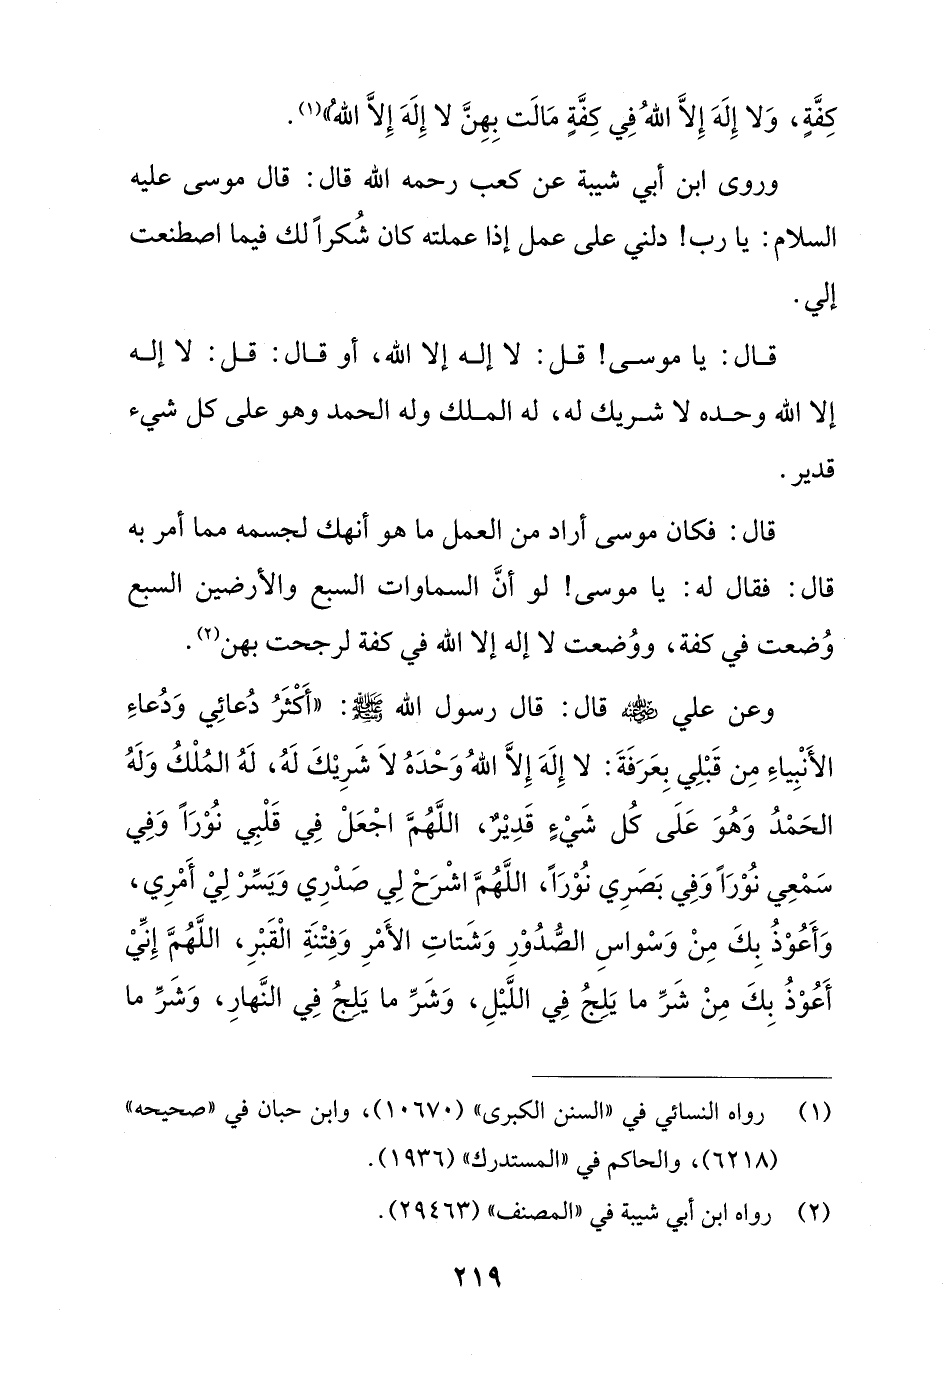 كِفَّةٍ، وَلا إِلَهَ إِلاَّ اللهُ فِي كِفَّةٍ مَالَت بِهِنَّ لا إِلَهَ إِلاَّ اللهُ»(١).
وروى ابن أبي شيبة عن كعب رحمه الله قال: قال موسى عليه
السلام: يا رب! دلني على عمل إذا عملته كان شُكراً لك فيما اصطنعت
إلي.
قال: يا موسى! قل: لا إله إلا الله، أو قال: قل: لا إله
إلا الله وحده لا شريك له، له الملك وله الحمد وهو على كل شيء
قدير.
قال: فكان موسى أراد من العمل ما هو أنهك لجسمه مما أمر به
قال: فقال له: يا موسى! لو أنَّ السماوات السبع والأرضين السبع
وُضعت في كفة، ووُضعت لا إله إلا الله في كفة لرجحت بهن(٢).
وعن علي رضي الله عنه قال: قال رسول الله ﷺ: «أَكْثَرُ دُعائِي وَدُعاءِ
الأَنْبِياءِ مِن قَبْلِي بِعَرَفَةَ: لا إِلَهَ إِلاَّ اللهُ وَحْدَهُ لاَ شَرِيْكَ لَهُ، لَهُ المُلْكُ وَلَهُ
الحَمْدُ وَهُوَ عَلَى كُل شَيْءٍ قَدِيْرٌ، اللَّهُمَّ اجْعَلْ فِي قَلْبِي نُوْرَاً وَفِي
سَمْعِي نُوْرَاً وَفِي بَصَرِي نُوْرَاً، اللَّهُمَّ اشْرَحْ لِي صَدْرِي وَيَسِّرْ لِيْ أَمْرِي،
وَأَعُوْذُ بِكَ مِنْ وَسْواسِ الصُّدُوْرِ وَشَتاتِ الأَمْرِ وَفِتْنَةِ الْقَبْرِ، اللَّهُمَّ إِنِّيْ
أَعُوْذُ بِكَ مِنْ شَرِّ ما يَلِجُ فِي اللَّيْلِ، وَشَرِّ ما يَلِجُ فِي النَّهارِ، وَشَرِّ ما
(١) رواه النسائي في «السنن الكبرى» (١٠٦٧٠)، وابن حبان في «صحيحه»
(٦٢١٨)، والحاكم في «المستدرك» (١٩٣٦).
(٢) رواه ابن أبي شيبة في «المصنف» (٢٩٤٦٣).
٢١٩